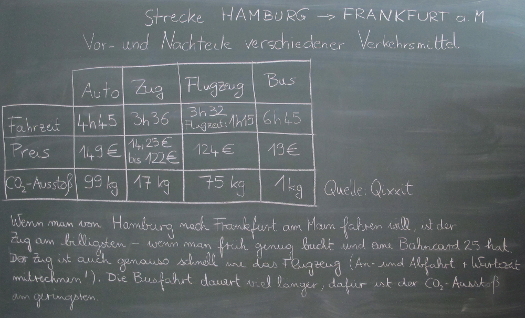 Strecke HAMBURG → FRANKFURT a. M.
Vor- und Nachteile verschiedener Verkehrsmittel
Auto Zug Flugzeug Bus
Fahrzeit 4h45 3h36 3h32 Flugzeit: 1h15 6h45
Preis 149€ 14,25€ bis 122€ 124€ 19€
CO₂-Ausstoß 99 kg 17 kg 75 kg 1 kg
Quelle: Qixxit
Wenn man von Hamburg nach Frankfurt am Main fahren will, ist der
Zug am billigsten – wenn man früh genug bucht und eine Bahncard 25 hat.
Der Zug ist auch genauso schnell wie das Flugzeug (An- und Abfahrt + Wartezeit
mitrechnen!). Die Busfahrt dauert viel länger, dafür ist der CO₂-Ausstoß
am geringsten.